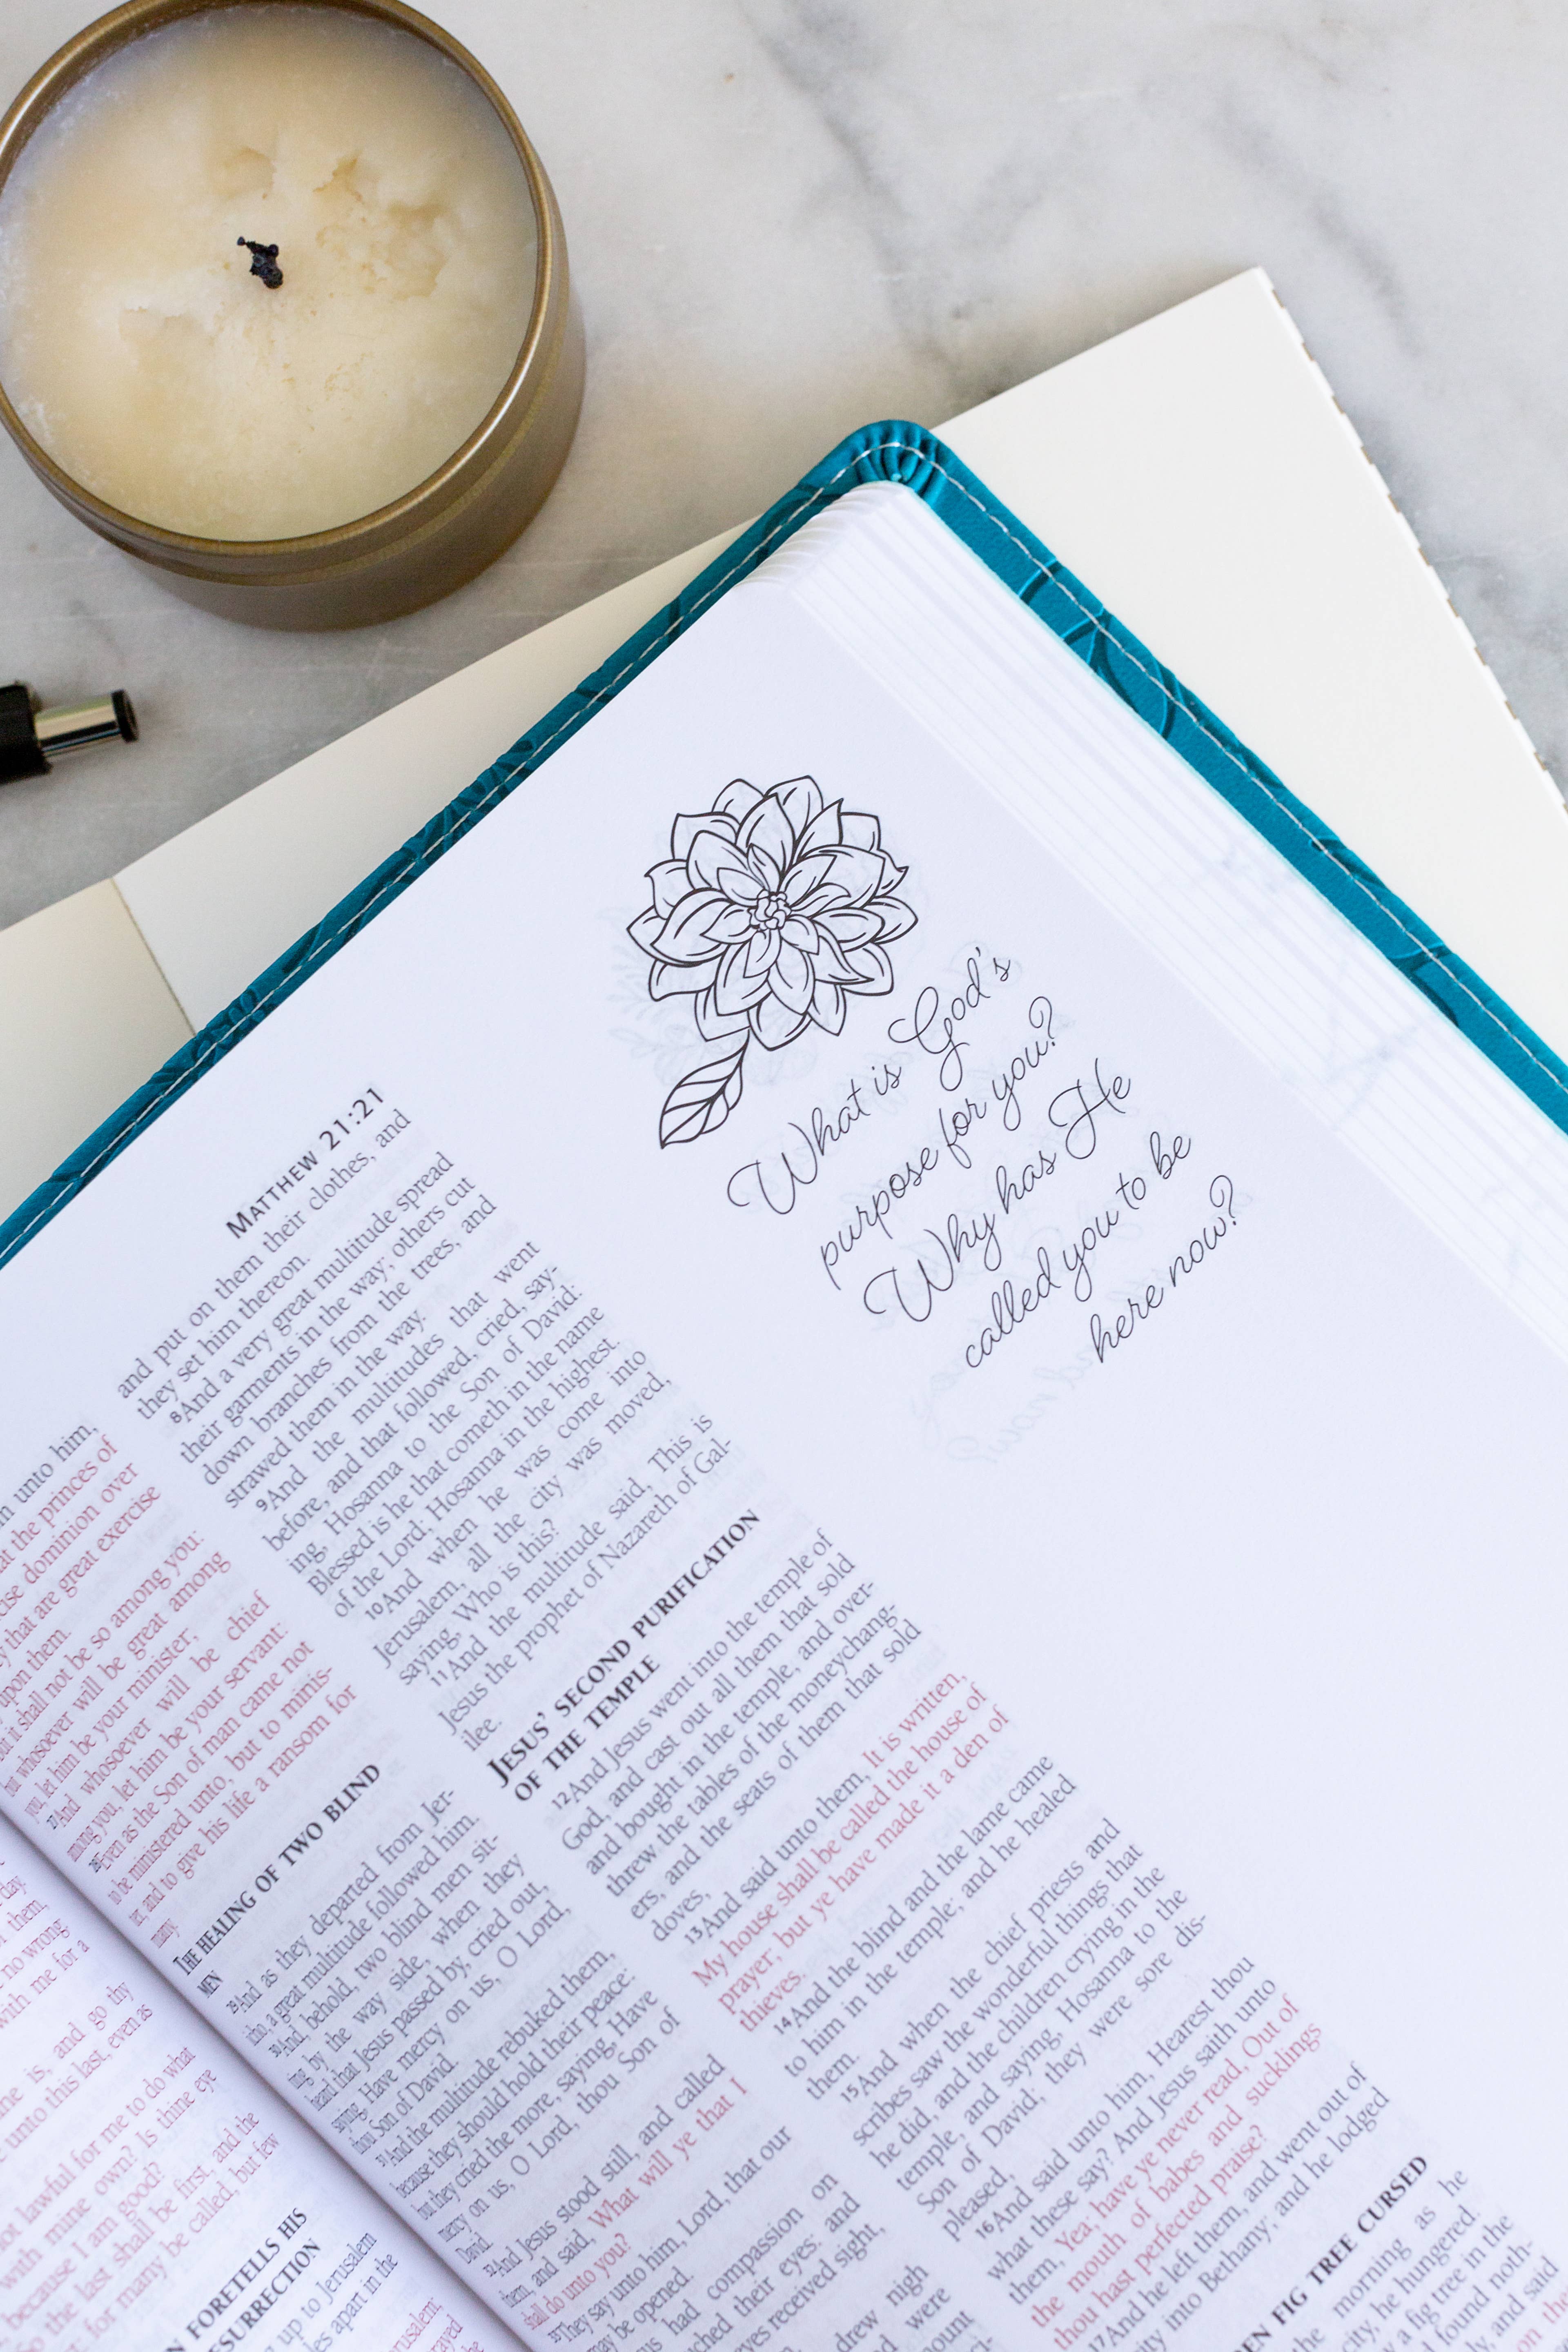 What is God's
purpose for you?
Why has He
called you to be
here now?
MATTHEW 21:21
unto him,
the princes of
dominion over
that are great exercise
upon them.
it shall not be so among you:
whosoever will be great among
you, let him be your minister;
27And whosoever will be chief
among you, let him be your servant:
28Even as the Son of man came not
to be ministered unto, but to minis-
ter, and to give his life a ransom for
many.
THE HEALING OF TWO BLIND
MEN
29And as they departed from Jer-
icho, a great multitude followed him.
30And, behold, two blind men sit-
ting by the way side, when they
heard that Jesus passed by, cried out,
saying, Have mercy on us, O Lord,
thou Son of David.
31And the multitude rebuked them,
because they should hold their peace:
but they cried the more, saying, Have
mercy on us, O Lord, thou Son of
David.
32And Jesus stood still, and called
them, and said, What will ye that I
shall do unto you?
33They say unto him, Lord, that our
may be opened.
had compassion on
their eyes: and
received sight,
drew nigh
were
and put on them their clothes, and
they set him thereon.
8And a very great multitude spread
their garments in the way; others cut
down branches from the trees, and
strawed them in the way.
9And the multitudes that went
before, and that followed, cried, say-
ing, Hosanna to the Son of David:
Blessed is he that cometh in the name
of the Lord; Hosanna in the highest.
10And when he was come into
Jerusalem, all the city was moved,
saying, Who is this?
11And the multitude said, This is
Jesus the prophet of Nazareth of Gal-
ilee.
JESUS' SECOND PURIFICATION
OF THE TEMPLE
12And Jesus went into the temple of
God, and cast out all them that sold
and bought in the temple, and over-
threw the tables of the moneychang-
ers, and the seats of them that sold
doves,
13And said unto them, It is written,
My house shall be called the house of
prayer; but ye have made it a den of
thieves.
14And the blind and the lame came
to him in the temple; and he healed
them.
15And when the chief priests and
scribes saw the wonderful things that
he did, and the children crying in the
temple, and saying, Hosanna to the
Son of David; they were sore dis-
pleased,
16And said unto him, Hearest thou
what these say? And Jesus saith unto
them, Yea; have ye never read, Out of
the mouth of babes and sucklings
thou hast perfected praise?
17And he left them, and went out of
city into Bethany; and he lodged
FIG TREE CURSED
morning as he
city, he hungered.
a fig tree in the
found noth-
and said
day.
them,
no wrong
with me for a
is, and go thy
unto this last, even as
not lawful for me to do what
with mine own? Is thine eye
because I am good?
So the last shall be first, and the
first for many be called, but few
FORETELLS HIS
up to Jerusalem
apart in the